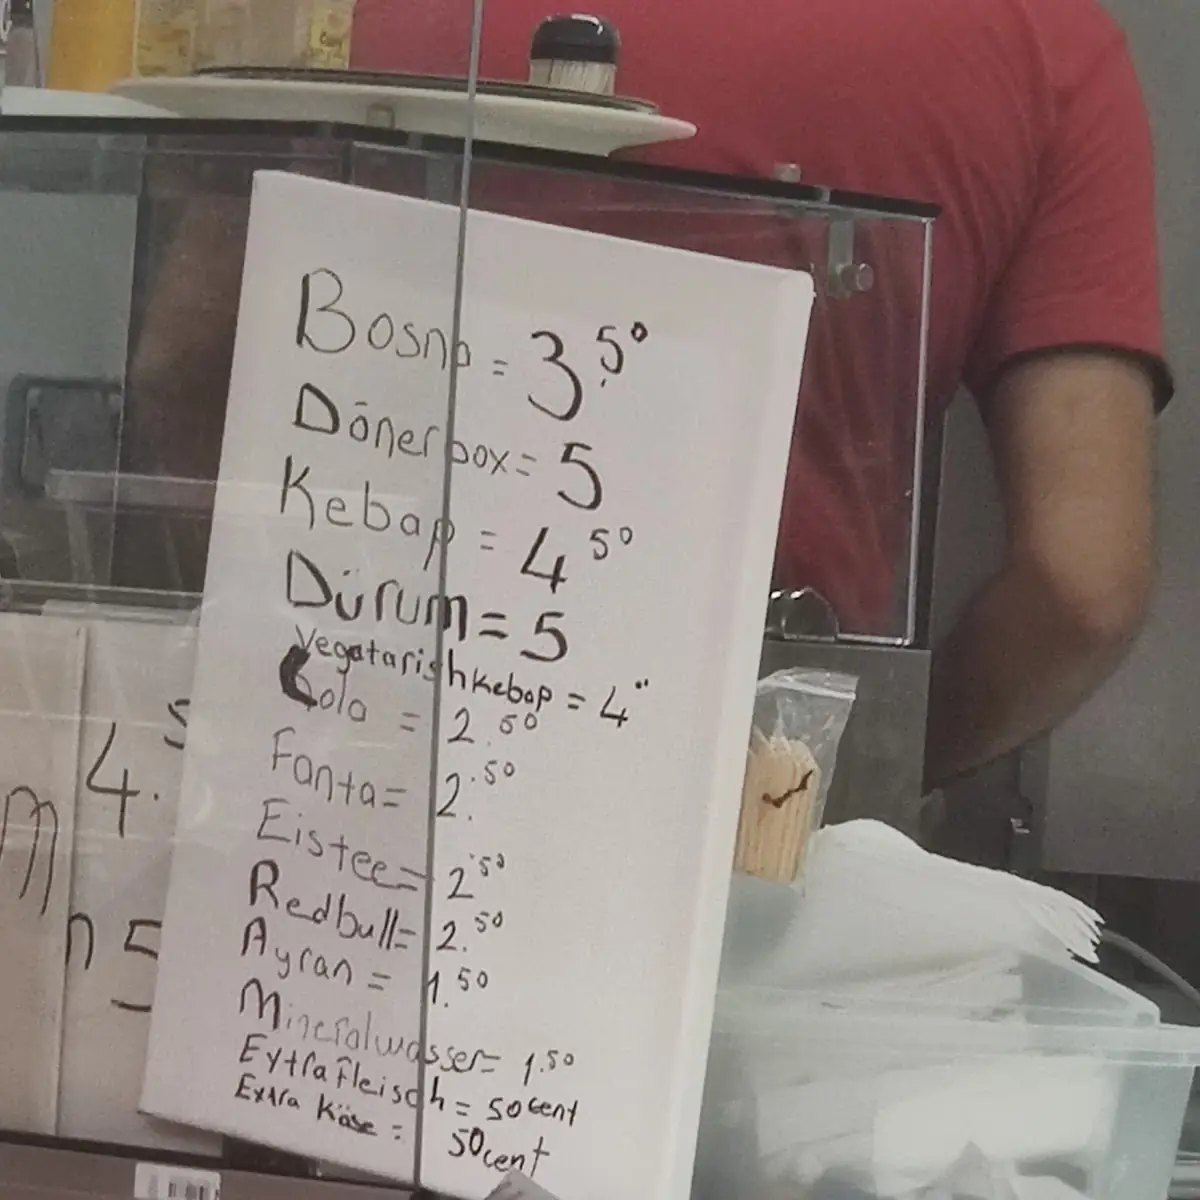 Bosna = 3.50
Dönerbox = 5
Kebap = 4 50
Dürum = 5
Vegatarish Kebap = 4"
Cola = 2.50
Fanta = 2.50
Eistee = 2.50
Redbull = 2.50
Ayran = 1.50
Mineralwasser = 1.50
Extra fleisch = 50 cent
Extra Käse = 50 cent
4.
m
n 5